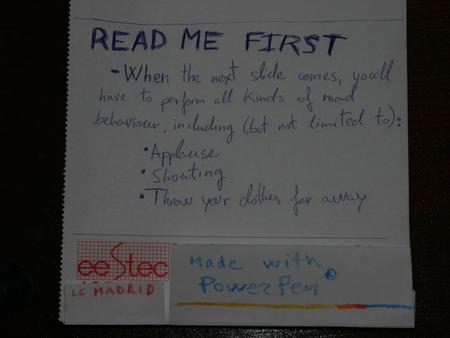 READ ME FIRST
- When the next slide comes, you'll
have to perform all kinds of mad
behaviour, including (but not limited to):
• Applause
• Shouting
• Throw your clothes far away
eeStec
LC MADRID
Made with
PowerPen